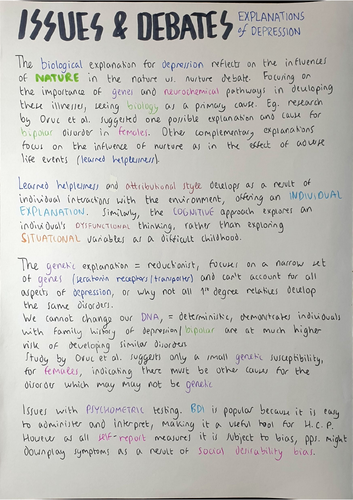 ISSUES & DEBATES EXPLANATIONS
of DEPRESSION
The biological explanation for depression reflects on the influences
of NATURE in the nature vs. nurture debate. Focusing on
the importance of genes and neurochemical pathways in developing
these illnesses, seeing biology as a primary cause. Eg. research
by Oruc et al. suggested one possible explanation and cause for
bipolar disorder in females. Other complementary explanations
focus on the influence of nurture as in the effect of adverse
life events (learned helplessness).
Learned helplessness and attributional style develop as a result of
individual interactions with the environment, offering an INDIVIDUAL
EXPLANATION. Similarly, the COGNITIVE approach explores an
individual's DYSFUNCTIONAL thinking, rather than exploring
SITUATIONAL variables as a difficult childhood.
The genetic explanation = reductionist, focuses on a narrow set
of genes (seratonin receptors/transporter) and can't account for all
aspects of depression, or why not all 1st degree relatives develop
the same disorders.
We cannot change our DNA, = deterministic, demonstrates individuals
with family history of depression/bipolar are at much higher
risk of developing similar disorders
Study by Oruc et al. suggests only a small genetic susceptibility,
for females, indicating there must be other causes for the
disorder which may may not be genetic
Issues with PSYCHOMETRIC testing. BDI is popular because it is easy
to administer and interpret, making it a useful tool for H.C.P.
However as all self-report measures it is subject to bias, pps. might
downplay symptoms as a result of social desirability bias.